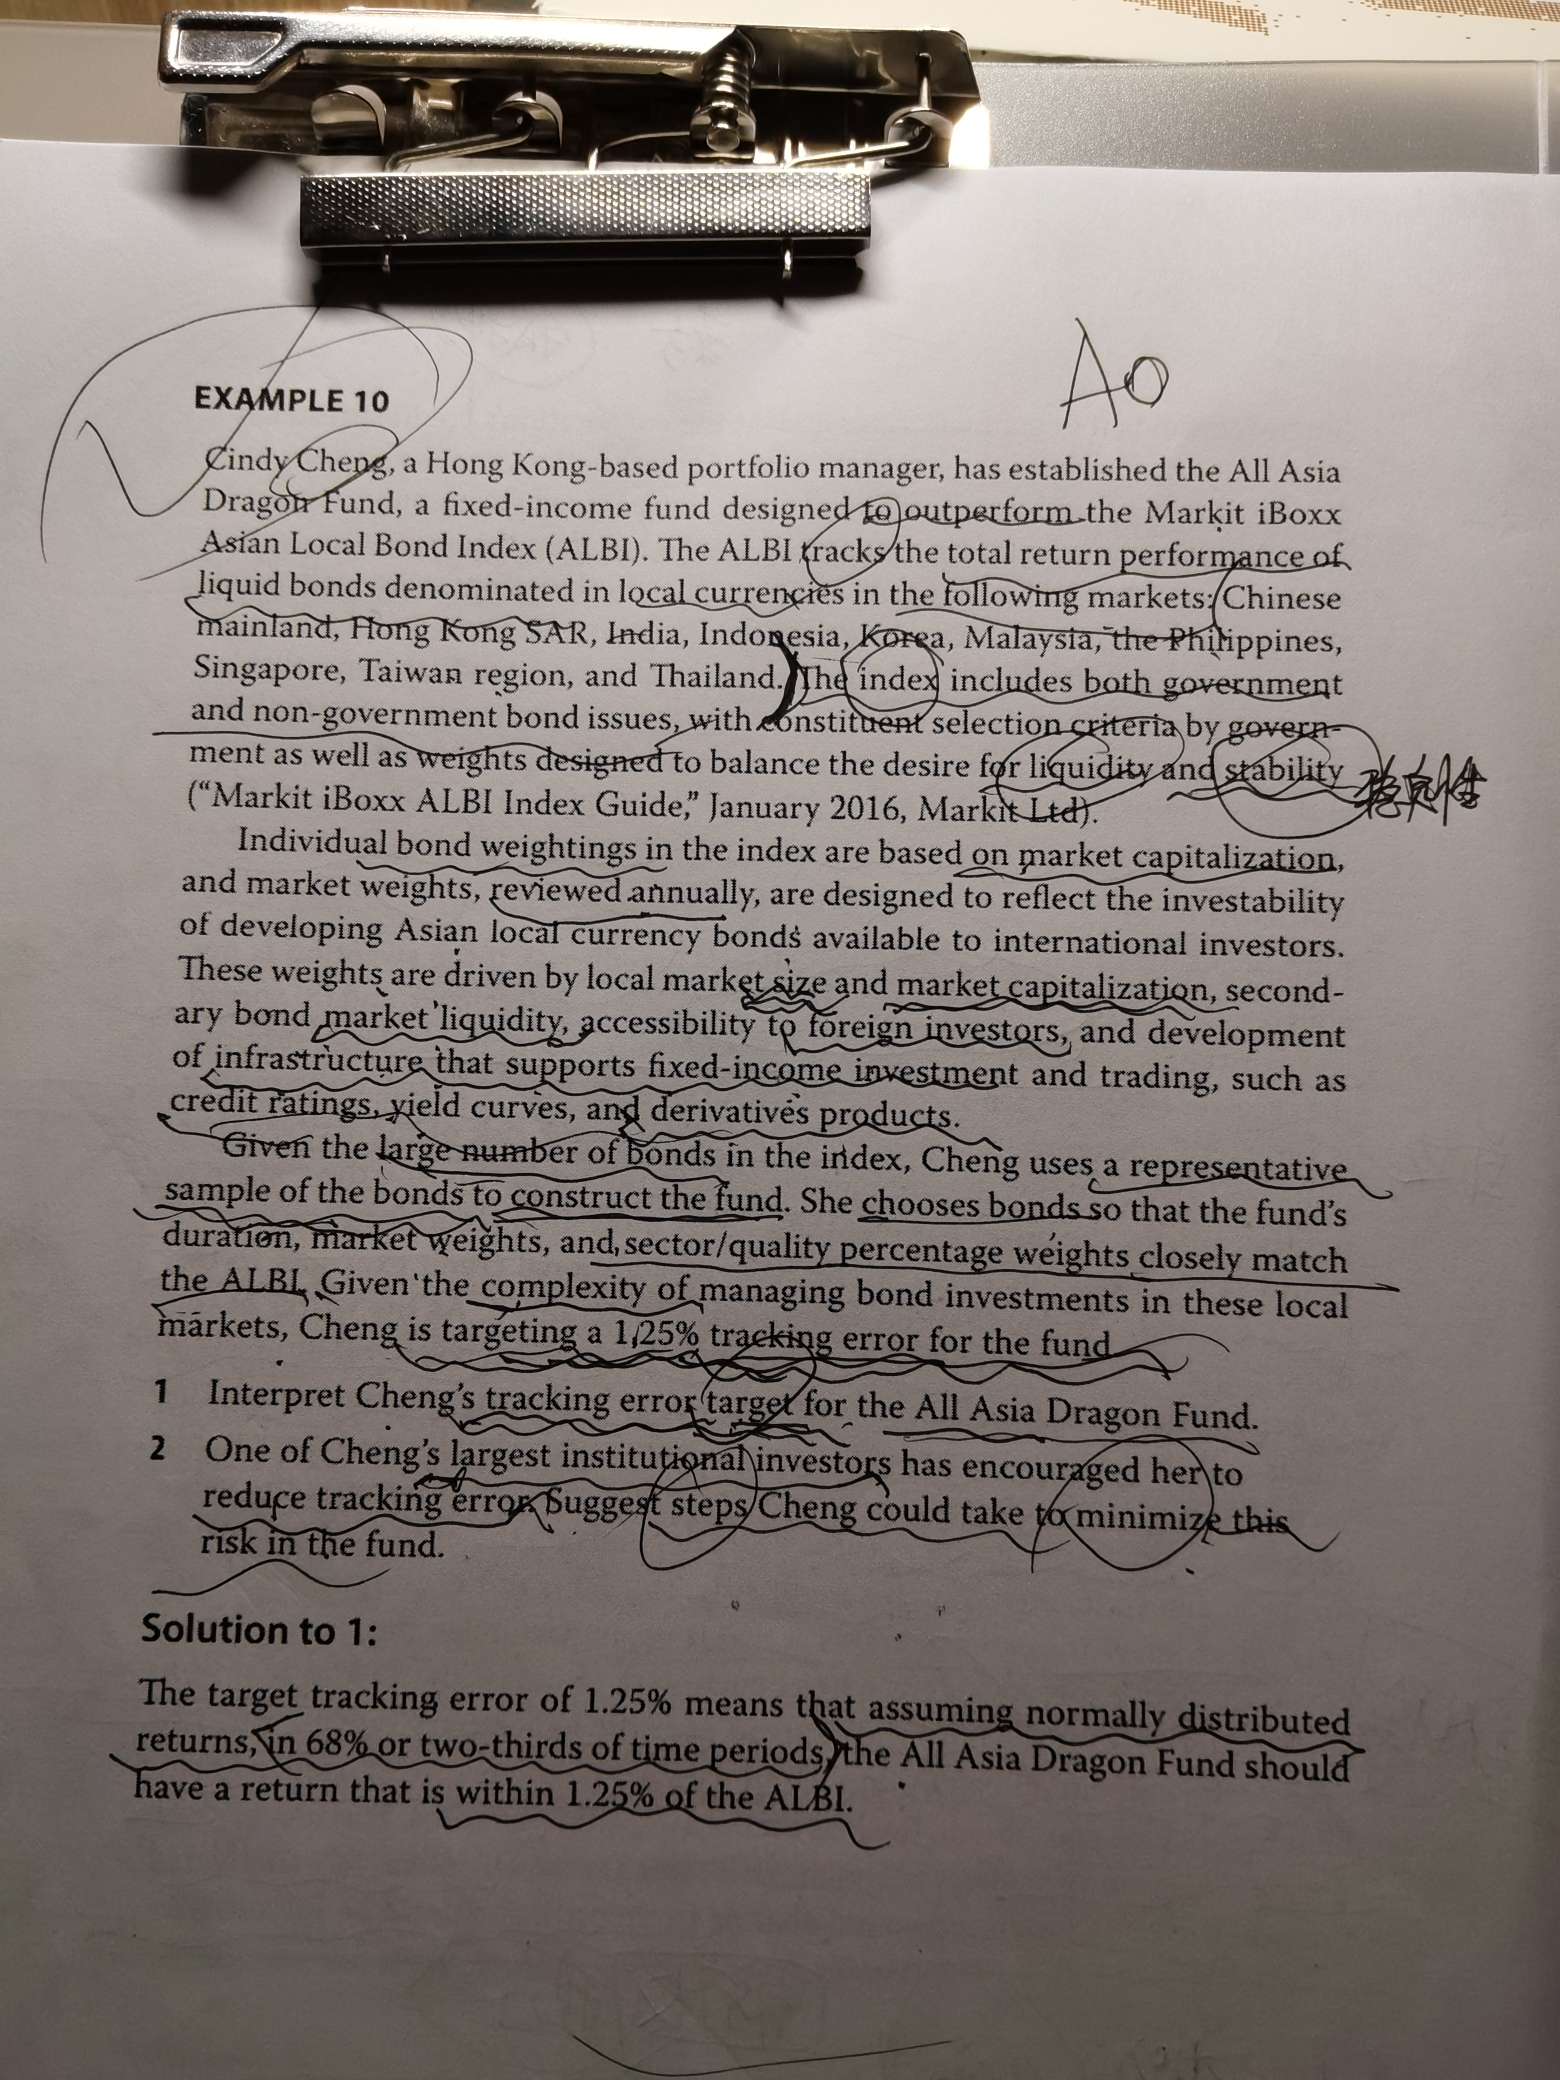 AO
EXAMPLE 10
Cindy Cheng, a Hong Kong-based portfolio manager, has established the All Asia
Dragon Fund, a fixed-income fund designed to outperform the Markit iBoxx
Asian Local Bond Index (ALBI). The ALBI tracks the total return performance of
liquid bonds denominated in local currencies in the following markets: Chinese
mainland, Hong Kong SAR, India, Indonesia, Korea, Malaysia, the Philippines,
Singapore, Taiwan region, and Thailand. The index includes both government
and non-government bond issues, with constituent selection criteria by govern-
ment as well as weights designed to balance the desire for liquidity and stability 稳定性
(“Markit iBoxx ALBI Index Guide,” January 2016, Markit Ltd).
Individual bond weightings in the index are based on market capitalization,
and market weights, reviewed annually, are designed to reflect the investability
of developing Asian local currency bonds available to international investors.
These weights are driven by local market size and market capitalization, second-
ary bond market liquidity, accessibility to foreign investors, and development
of infrastructure that supports fixed-income investment and trading, such as
credit ratings, yield curves, and derivatives products.
Given the large number of bonds in the index, Cheng uses a representative
sample of the bonds to construct the fund. She chooses bonds so that the fund’s
duration, market weights, and sector/quality percentage weights closely match
the ALBI. Given the complexity of managing bond investments in these local
markets, Cheng is targeting a 1.25% tracking error for the fund.
1 Interpret Cheng’s tracking error target for the All Asia Dragon Fund.
2 One of Cheng’s largest institutional investors has encouraged her to
reduce tracking error. Suggest steps Cheng could take to minimize this
risk in the fund.
Solution to 1:
The target tracking error of 1.25% means that assuming normally distributed
returns, in 68% or two-thirds of time periods, the All Asia Dragon Fund should
have a return that is within 1.25% of the ALBI.